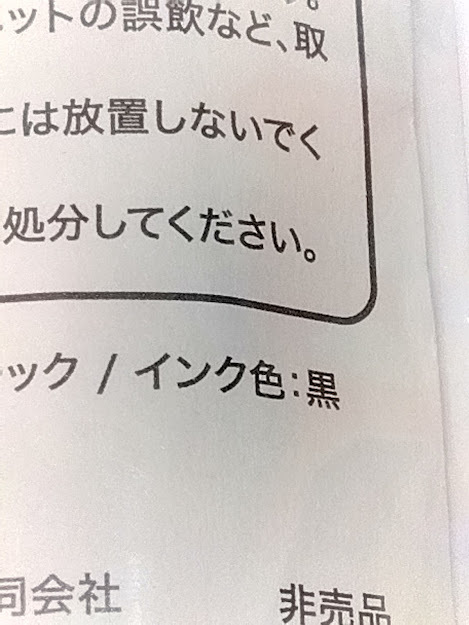 ットの誤飲など、取
には放置しないでく
処分してください。
ック / インク色：黒
同会社
非売品